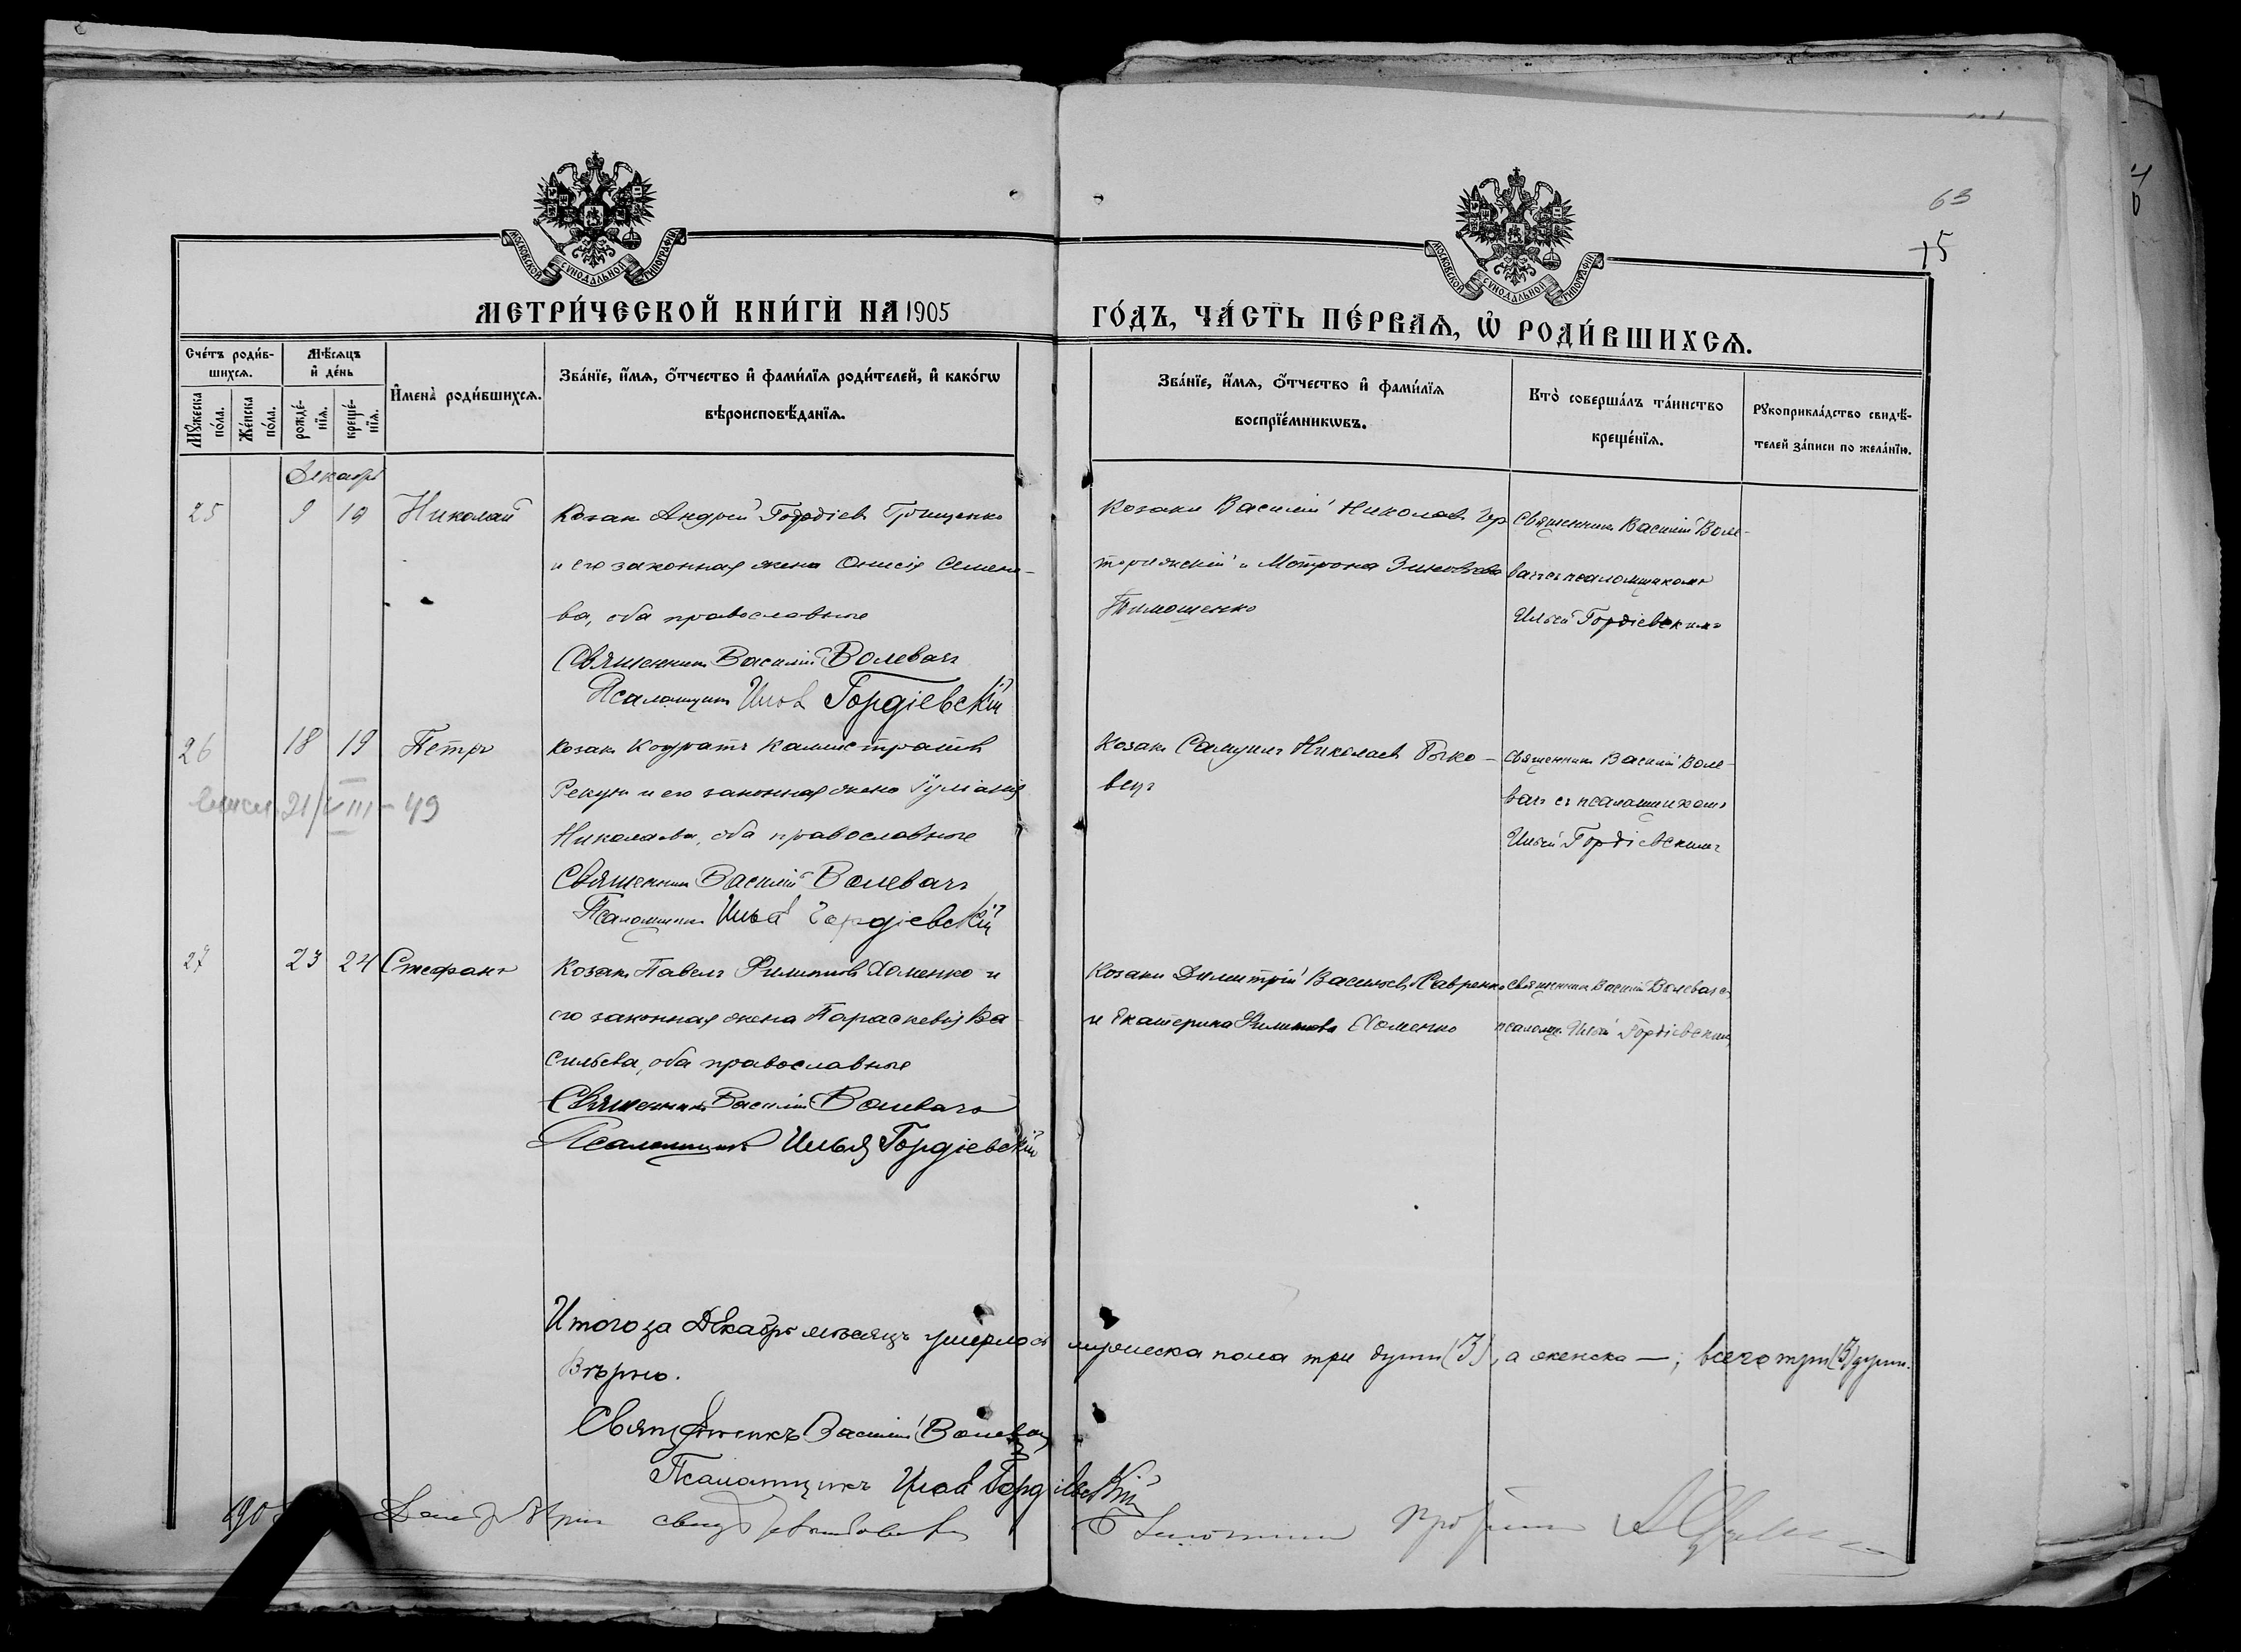 63
15
МОСКОВСКОЙ СѴНОДАЛЬНОЙ ТИПОГРАФІИ
МОСКОВСКОЙ СѴНОДАЛЬНОЙ ТИПОГРАФІИ
МЕТРИ́ЧЕСКОЙ КНИ́ГИ НА 1905
ГО́ДЪ, ЧА́СТЬ ПЕ́РВАѦ, Ѡ҆ РОДИ́ВШИХСѦ.
Сче́тъ роди́в-
шихсѧ.
Мѣ́сѧцъ
и҆ де́нь
Мꙋ́жеска
по́ла.
Же́нска
по́ла.
рожде́-
нїѧ.
креще́-
нїѧ.
И҆мена̀ роди́вшихсѧ.
Зва́нїе, и҆́мѧ, ѻ҆́тчество и҆ фами́лїѧ роди́телей, и҆ како́гѡ
вѣроисповѣ́данїѧ.
Зва́нїе, и҆́мѧ, ѻ҆́тчество и҆ фами́лїѧ
воспрїе́мникѡвъ.
Кто̀ соверша́лъ та́инство
креще́нїѧ.
Рꙋкоприкла́дство свидѣ́-
телей за́писи по жела́нїю.
Декабрь
25 9 19 Николай
Козакъ Андрей Гордіевъ Грищенко
и его законная жена Онисія Семено-
ва, оба православные
Священникъ Василій Волевачъ
Псаломщикъ Илья Гордіевскій
Козаки Василій Николаевъ
и Мотрона
Тимошенко
Священникъ Василій Воле-
вачъ съ псаломщикомъ
Ильей Гордіевскимъ
26 18 19 Петръ
21/VIII-49
Козакъ Кодратъ Каллистратовъ
Рекун и его законная жена Іуліанія
Николаева, оба православные
Священникъ Василій Волевачъ
Псаломщикъ Илья Гордіевскій
Козакъ Самуилъ Николаевъ Быко-
вецъ
Священникъ Василій Воле-
вачъ съ псаломщикомъ
Ильей Гордіевскимъ
27 23 24 Стефанъ
Козакъ Павелъ Филиповъ Хоменко и
его законная жена Параскевія Ва
сильева, оба православные
Священникъ Василій Волевачъ
Псаломщикъ Илья Гордіевскій
Козаки Димитрій Васильевъ Лавренко
и Екатерина Филипова Хоменко
Священникъ Василій Волевачъ съ
псаломщ. Ильей Гордіевскимъ
Итого за Декабрь мѣсяцъ умерло мужеска пола три души (3), а женска —; всего три (3) души.
Вѣрно.
Священникъ Василій Волевачъ
Псаломщикъ Илья Гордіевскій